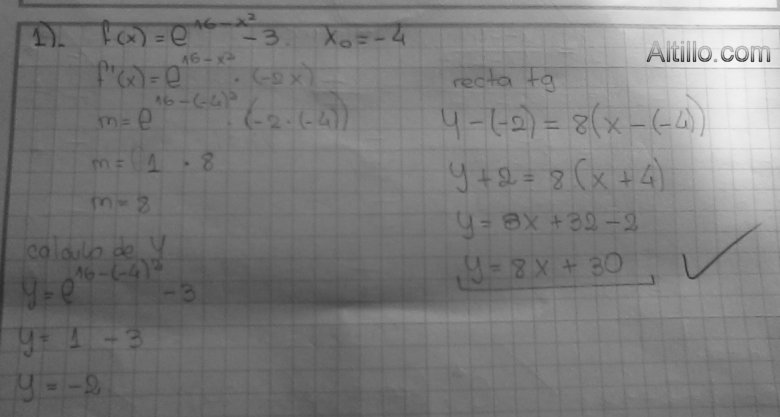 1). f(x) = e^{16-x²} - 3. x₀ = -4
Altillo.com
f'(x) = e^{16-x²} · (-2x)
m = e^{16-(-4)²} · (-2·(-4))
m = 1 · 8
m = 8
calculo de y
y = e^{16-(-4)²} - 3
y = 1 - 3
y = -2
recta tg
y - (-2) = 8(x - (-4))
y + 2 = 8(x + 4)
y = 8x + 32 - 2
y = 8x + 30 ✓